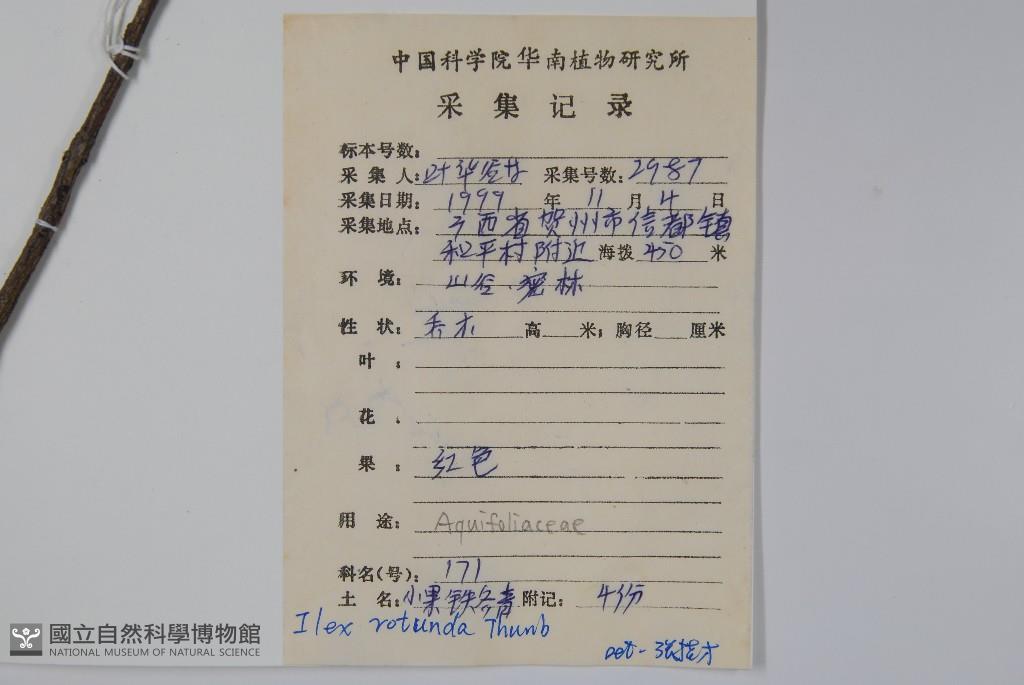 中国科学院华南植物研究所
采集记录
标本号数:
采集人:叶华谷 采集号数:2987
采集日期: 1999 年 11 月 4 日
采集地点: 广西省贺州市信都镇
和平村附近 海拨 450 米
环境: 山谷.密林
性状: 乔木 高 米; 胸径 厘米
叶:
花.
果: 红色
用途: Aquifoliaceae
科名(号): 171
土名:小果铁冬青 附记: 4份
Ilex rotunda Thunb
det - 张
國立自然科學博物館
NATIONAL MUSEUM OF NATURAL SCIENCE